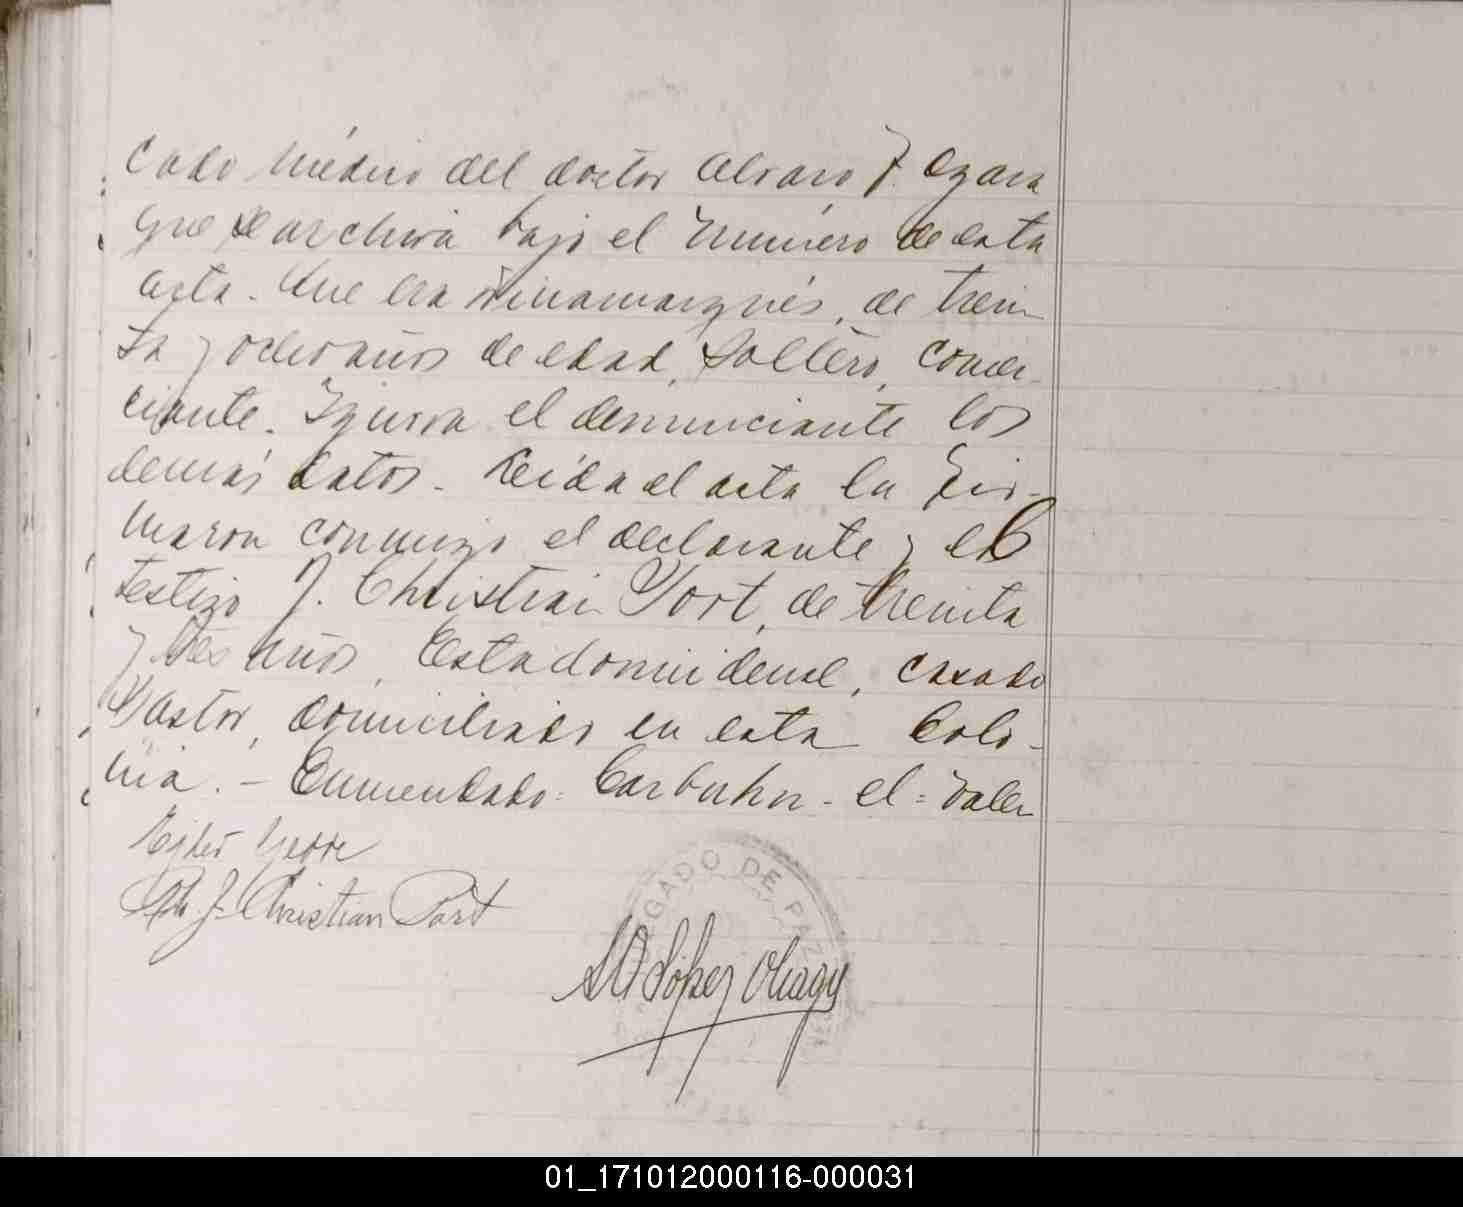 cado médico del doctor Alvaro F.
que se archiva bajo el número de esta
acta. Que era dinamarqués, de trein
ta y ocho años de edad, soltero, comer-
ciante. Ignora el denunciante los
demás datos. Leida el acta la fir-
maron conmigo el declarante y el
testigo J. Christian Port, de treinta
y tres años, Estadounidense, casado
Pastor, domiciliado en esta Colo-
nia. - Enmendado: - el = Vale
J. Christian Port
López
JUZGADO DE PAZ
01_171012000116-000031